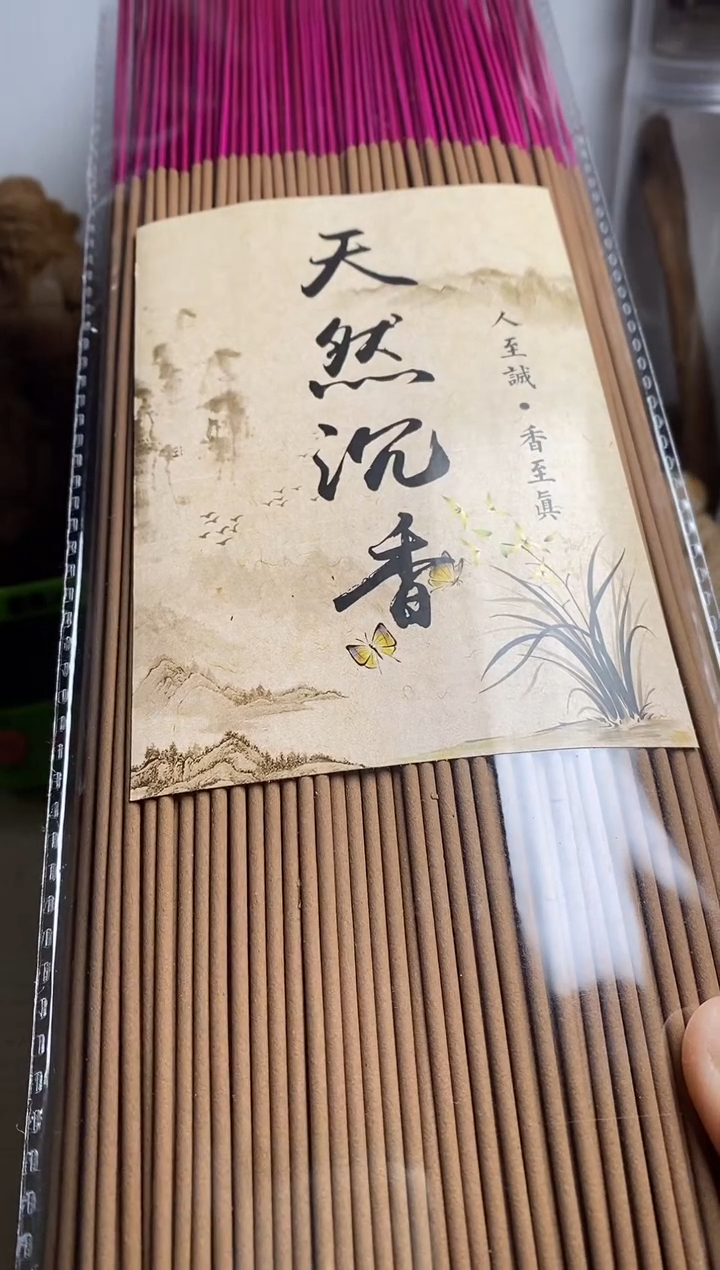 天然沉香
人至誠·香至眞